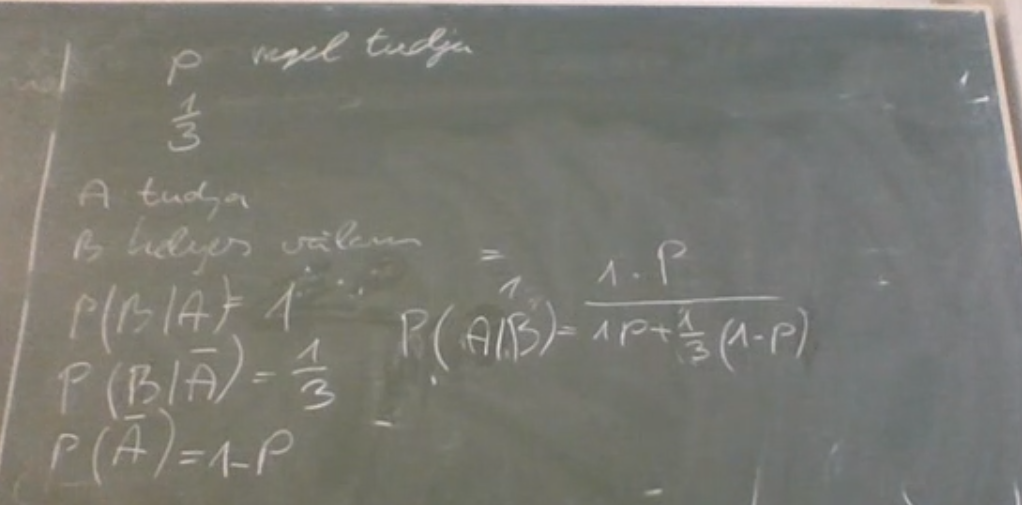 p vszel tudja
1/3
A tudja
B helyes válasz
P(B|A) = 1
P(B|Ā) = 1/3
P(Ā) = 1-P
=
1
P(A|B) = 1·P / 1P + 1/3 (1-P)